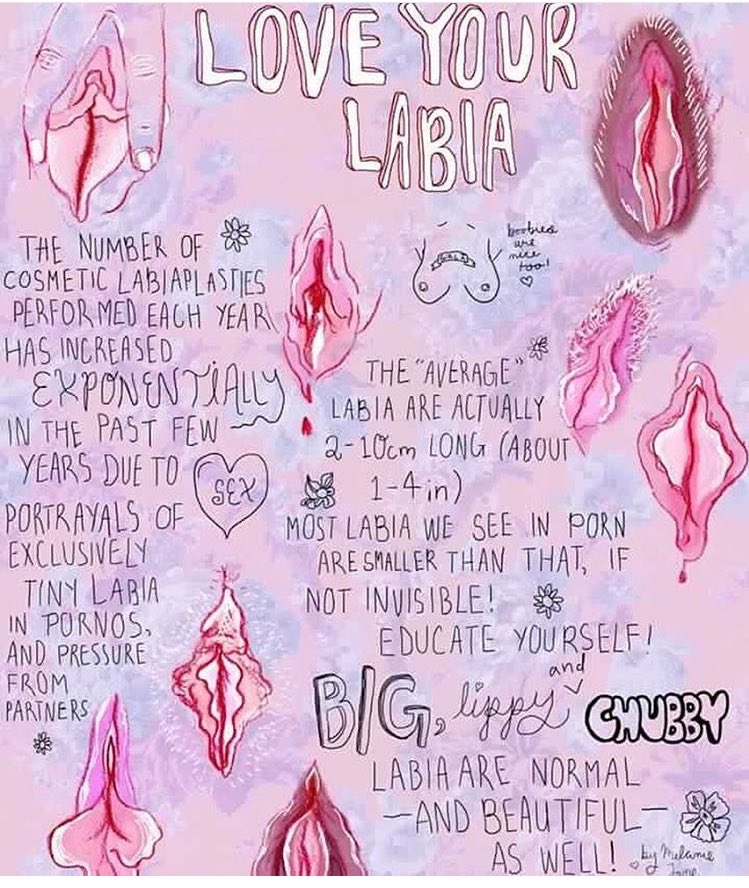 LOVE YOUR
LABIA
THE NUMBER OF
COSMETIC LABIAPLASTIES
PERFORMED EACH YEAR
HAS INCREASED
EXPONENTIALLY
IN THE PAST FEW
YEARS DUE TO
SEX
PORTRAYALS OF
EXCLUSIVELY
TINY LABIA
IN PORNOS,
AND PRESSURE
FROM
PARTNERS
boobies
are
nice
too!
THE "AVERAGE"
LABIA ARE ACTUALLY
2-10cm LONG (ABOUT
1-4in)
MOST LABIA WE SEE IN PORN
ARE SMALLER THAN THAT, IF
NOT INVISIBLE!
EDUCATE YOURSELF!
BIG, lippy and CHUBBY
LABIA ARE NORMAL
—AND BEAUTIFUL—
AS WELL!
by Melanie